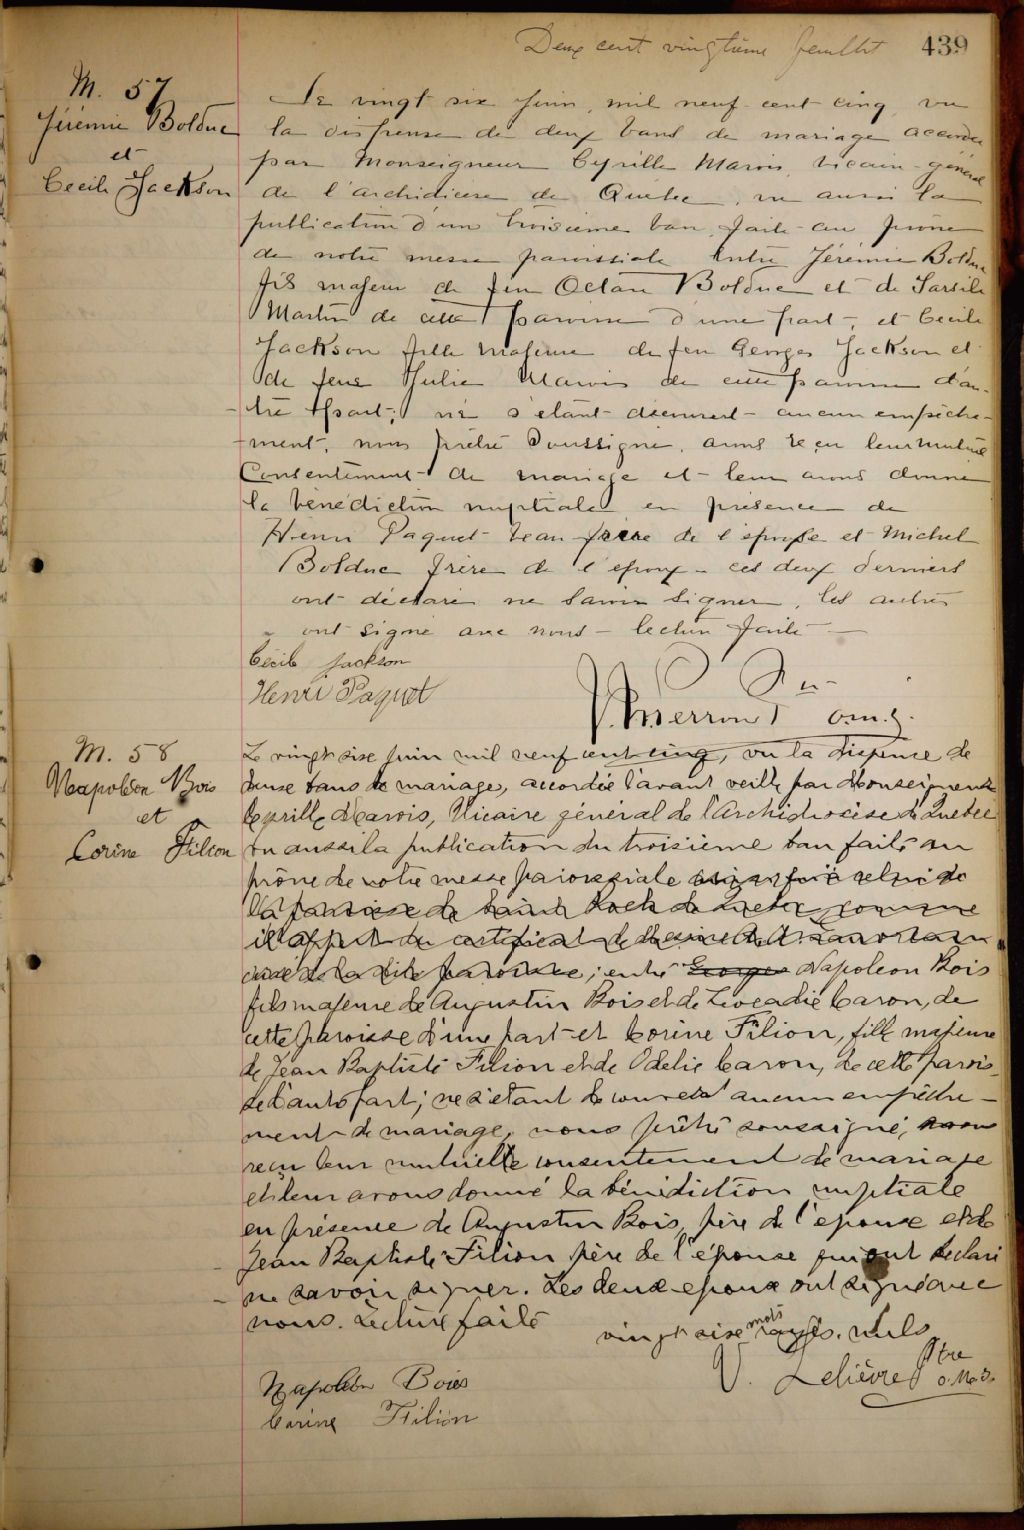 Deux cent vingtième feuillet 439
M. 57
Jérémie Bolduc
et
Cecile Jackson
Le vingt six Juin, mil neuf cent cinq vu
la dispense de deux bans de mariage accordée
par Monseigneur Cyrille Marois, Vicaire-général
de l'archidiocèse de Quebec, vu aussi la
publication d'un troisième ban, faite au prône
de notre messe paroissiale entre Jérémie Bolduc
fils majeur de feu Octave Bolduc et de Tarsile
Martin de cette paroisse d'une part, et Cecile
Jackson fille majeure de feu Georges Jackson et
de feue Julie Marois de cette paroisse d'au-
tre part; ne s'étant découvert aucun empêche-
-ment, nous prêtre soussigné, avons reçu leur mutuel
Consentement de mariage et leur avons donné
la bénédiction nuptiale en présence de
Henri Paquet beau-frère de l'épouse et Michel
Bolduc frère de l'époux - ces deux derniers
ont déclaré ne savoir signer, les autres
ont signé avec nous - lecture faite -
Cécile Jackson
Henri Paquet
o.m.i.
M. 58
Napoléon Bois
et
Corine Filion
Le vingt sixe Juin mil neuf cent cinq, vu la dispense de
deuxe bans de mariage, accordée l'avant veille par Monseigneur
Cyrille Marois, Vicaire général de l'Archidiocèse de Quebec
vu aussi la publication du troisième ban faite au
prône de notre messe paroissiale ainsi qu'à celui de
la paroisse de Saint Roch de Quebec, comme
il appert du certificat de
curé de la dite paroisse; entre Georges Napoleon Bois
fils majeure de Augustin Bois et de Leocadie Caron, de
cette paroisse d'une part et Corine Filion, fille majeure
de Jean Baptiste Filion et de Odelie Caron, de cette parois-
se d'autre part; ne s'étant découvert aucun empêche-
ment de mariage, nous prêtre soussigné, avons
reçu leur mutuelle consentement de mariage
et leur avons donné la bénédiction nuptiale
en présence de Augustin Bois, père de l'epouxe et de
Jean Baptiste Filion père de l'épouse qui ont declaré
ne savoir signer. Les deux epoux ont signé avec
nous. Lecture faite
vingt sixe mots rayés. nuls
V. Lelièvre Ptre
o.m.i.
Napoléon Bois
Corine Filion